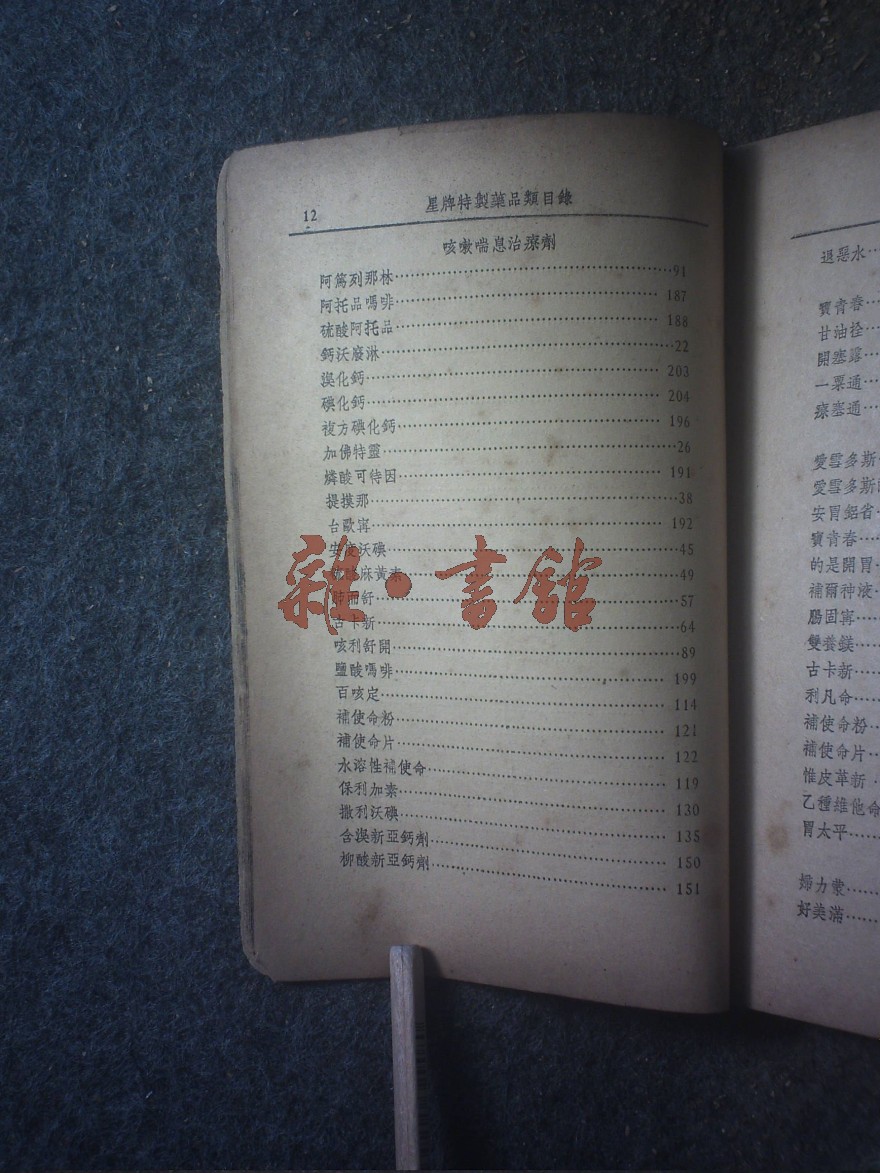 12 星牌特製藥品類目錄
咳嗽喘息治療劑
阿篤列那林……91
阿托品嗎啡……187
硫酸阿托品……188
鈣沃廢淋……22
溴化鈣……203
碘化鈣……204
複方碘化鈣……196
加佛特靈……26
燐酸可待因……191
提摸那……38
台歐寗……192
安度沃碘……45
麻黃素……49
肺而舒……57
古卡新……64
咳利舒開……89
鹽酸嗎啡……199
百咳定……114
補使命粉……121
補使命片……122
水溶性補使命……119
保利加素……130
撒利沃碘……135
含溴新亞鈣劑……150
柳酸新亞鈣劑……151
雜·書館
退惡水…
寶青春…
甘油栓…
開塞露…
一粟通…
療塞通…
愛雪多斯
愛雪多斯
安胃鋁省
寶青春…
的是開胃
補爾神液
腸固寗…
雙養鎂…
古卡新…
利凡命…
補使命粉
補使命片
惟皮革新
乙種維他命
胃太平…
婦力蒙…
好美滿…